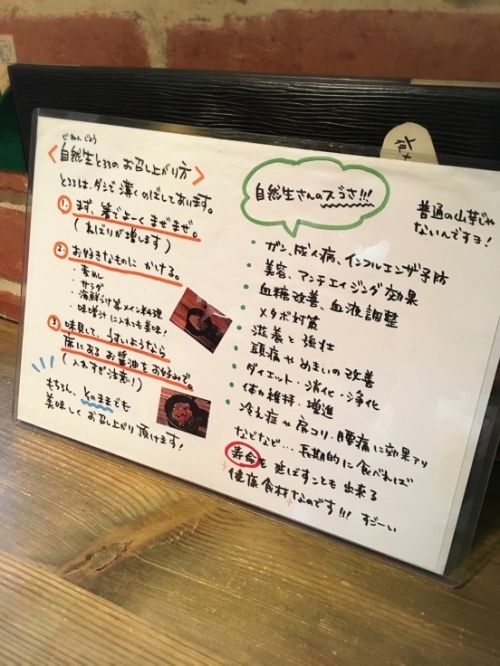 じねんじょう
<自然生とろろのお召し上がり方>
とろろは、ダシで薄くのばしてあります。
1. まず、箸でよくまぜまぜ。
(ねばりが増します)
2. お好きなものにかける。
・麦めし
・サラダ
・海鮮づけ等メイン料理
・味噌汁に入れても美味!
3. 味見して、うすいようなら
席にあるお醤油をお好みで。
(入れすぎ注意!)
もちろん、そのままでも
美味しくお召し上がり頂けます!
自然生さんのスゴさ!!!
普通の山芋じゃ
ないんですヨ!
・ガン、成人病、インフルエンザ予防
・美容、アンチエイジング効果
・血糖改善、血液調整
・メタボ対策
・滋養と強壮
・頭痛やめまいの改善
・ダイエット・消化・浄化
・体力維持・増進
・冷え症や肩コリ、腰痛に効果アリ
などなど…長期的に食べれば
寿命を延ばすことも出来る
健康食材なのです!!! すごーい